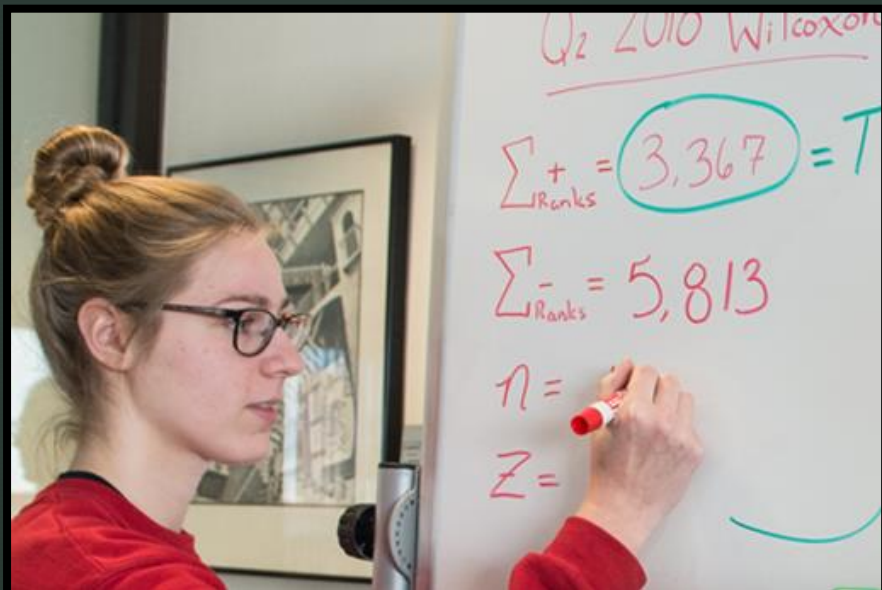 Q2 2016 Wilcoxon
Σ+ Ranks = 3,367 = T
Σ- Ranks = 5,813
n =
Z =